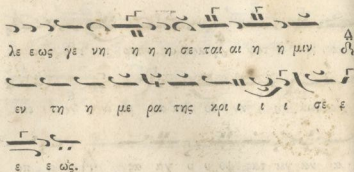 λε εως γε νη η η η σε ται αι η η μιν
εν τη η με ρα της κρι ι ι ι σε ε
ε ε ως.